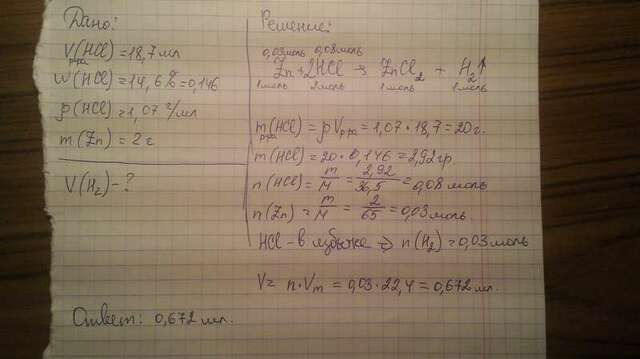 Дано:
V р-ра (HCl) = 18,7 мл
w(HCl) = 14,6% = 0,146
ρ(HCl) = 1,07 г/мл
m(Zn) = 2 г
V(H₂) - ?
Решение:
0,03моль 0,08моль
Zn + 2HCl → ZnCl₂ + H₂↑
1моль 2моль 1моль 1моль
m р-ра (HCl) = ρ V р-ра = 1,07 · 18,7 = 20г.
m(HCl) = 20 · 0,146 = 2,92 гр
n(HCl) = m/M = 2,92/36,5 = 0,08 моль
n(Zn) = m/M = 2/65 = 0,03 моль
HCl - в избытке ⇒ n(H₂) = 0,03 моль
V = n · Vm = 0,03 · 22,4 = 0,672 мл.
Ответ: 0,672 мл.